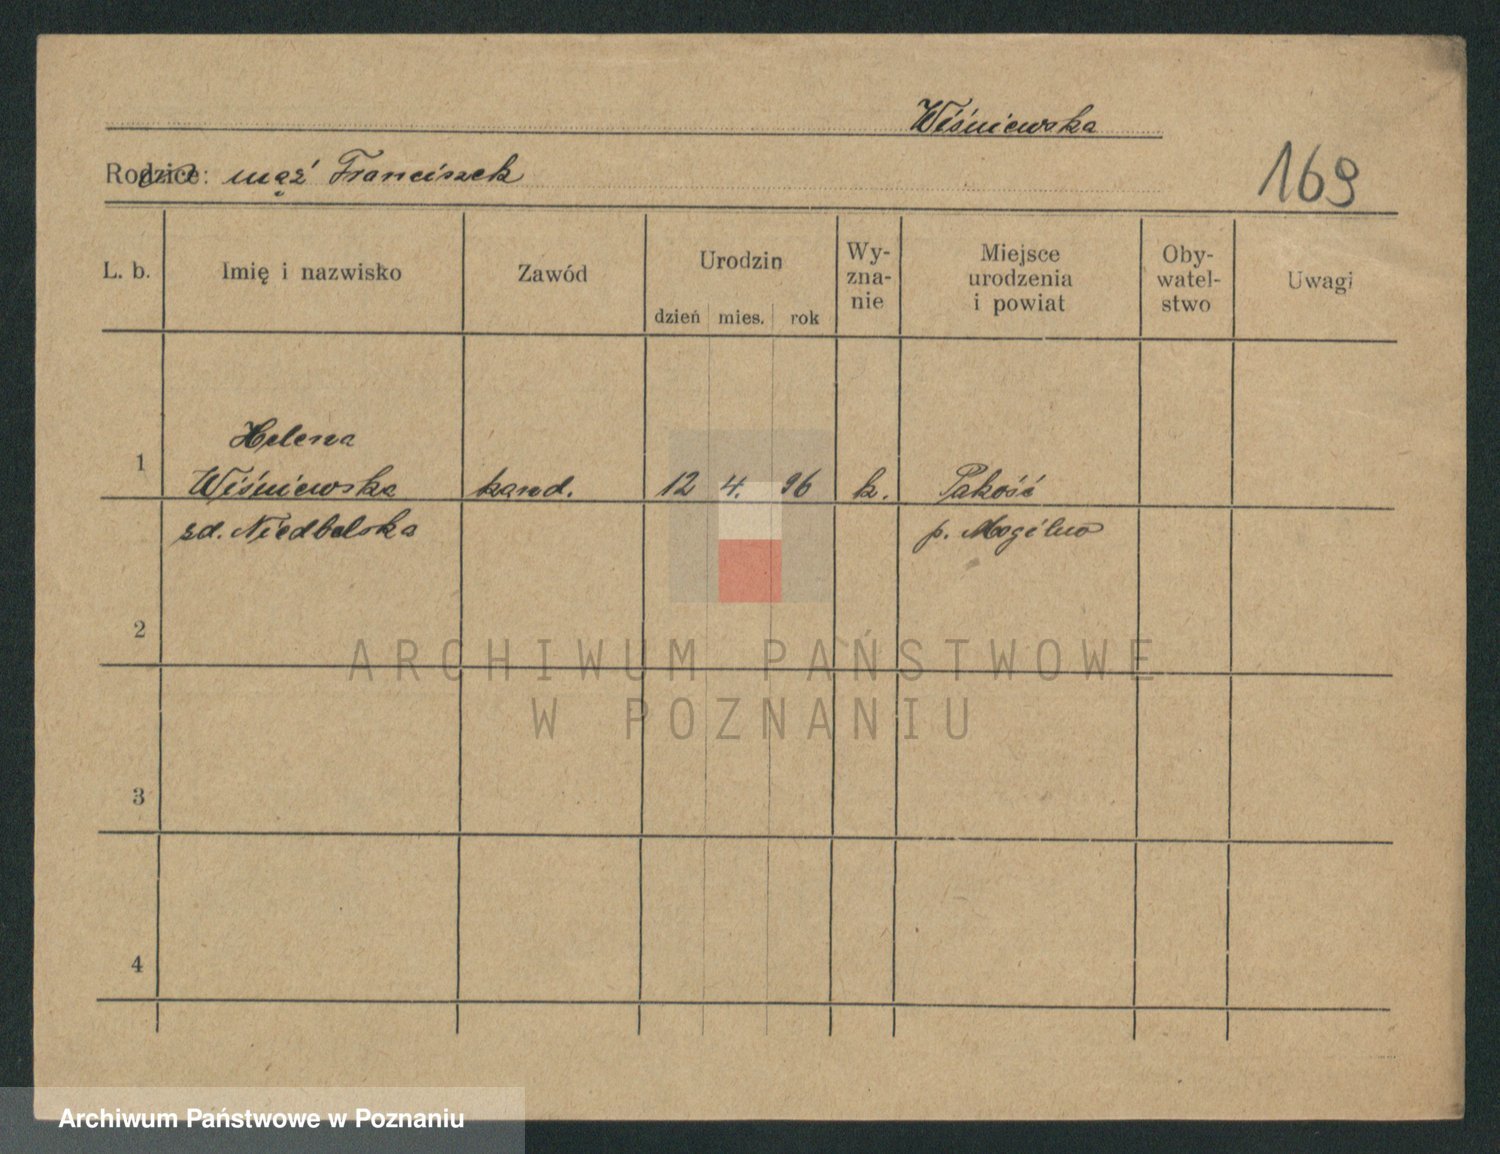 Wiśniewska
Rodzice: mąż Franciszek
169
L. b. Imię i nazwisko Zawód Urodzin dzień mies. rok Wy-znanie Miejsce urodzenia i powiat Oby-watel-stwo Uwagi
Helena
1 Wiśniewska 12 4. 96 k. Pakość
zd. Niedbalska p. Mogilno
2
ARCHIWUM PAŃSTWOWE
W POZNANIU
3
4
Archiwum Państwowe w Poznaniu